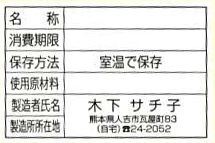 名称
消費期限
保存方法 室温で保存
使用原材料
製造者氏名 木下 サチ子
製造所所在地 熊本県人吉市瓦屋町83
(自宅)☎24-2052